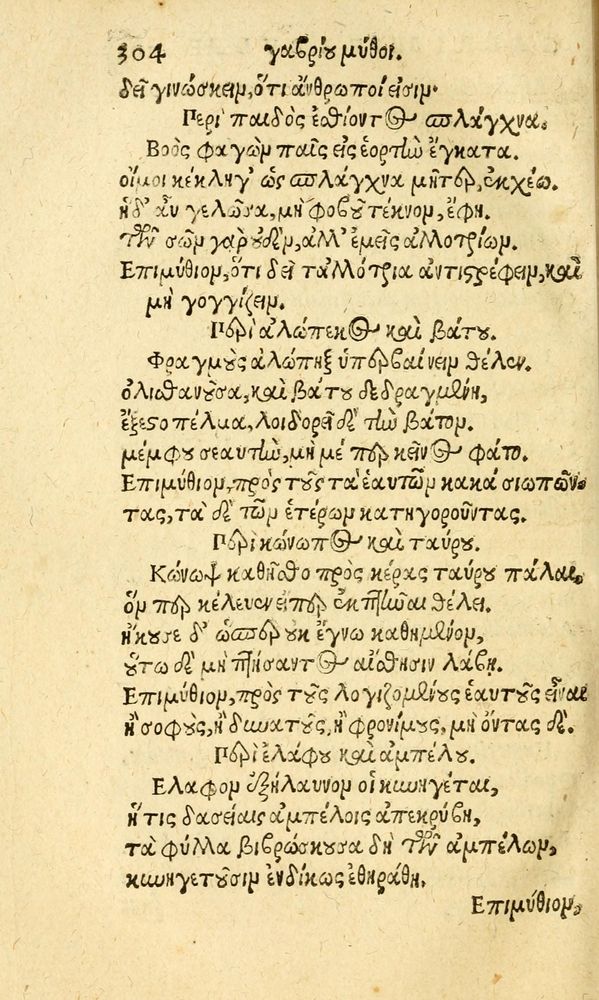 304 γαβρίου μύθοι.
δεῖ γινώσκειν, ὅτι ἀνθρωποί εἰσιν.
Περὶ παιδὸς ἐσθίοντος σπλάγχνα.
Βοὸς φαγὼν παῖς εἰς ἑορτὴν ἔγκατα.
οἴμοι κέκληγ' ὡς σπλάγχνα μῆτερ, ἐκχέω.
ἡ δ' αὖ γελῶσα, μὴ φοβοῦ τέκνον, ἔφη.
τῶν σῶν γὰρ οὐδὲν, ἀλλ' ἐμεῖς ἀλλοτρίων.
Επιμύθιον, ὅτι δεῖ τἀλλότρια ἀντιστρέφειν, καὶ
μὴ γογγίζειν.
Περὶ ἀλώπεκος καὶ βάτου.
Φραγμοὺς ἀλώπηξ ὑπερβαίνειν θέλεν.
ὀλισθανοῦσα, καὶ βάτου δεδραγμένη,
ἐξέστο πέλμα, λοιδορεῖ δὲ τὴν βάτον.
μέμφου σεαυτὴν, μὴ μέ περ κεῖνος φάτο.
Επιμύθιον, πρὸς τοὺς τὰ ἑαυτῶν κακὰ σιωπῶν-
τας, τὰ δὲ τῶν ἑτέρων κατηγοροῦντας.
Περὶ κώνωπος καὶ ταύρου.
Κώνωψ καθῆσθο πρὸς κέρας ταύρου πάλαι.
ὃν περ κέλευεν εἴπερ ἐκπτῆναι θέλει.
ἤκουσε δ' ὥσπερ οὐκ ἔγνω καθημένον,
οὕτω δὲ μὴ πτήσαντος αἴσθησιν λάβῃ.
Επιμύθιον, πρὸς τοὺς λογιζομένους ἑαυτοὺς εἶναι
ἢ σοφοὺς, ἢ δυνατοὺς, ἢ φρονίμους, μὴ ὄντας δέ.
Περὶ ἐλάφου καὶ ἀμπέλου.
Ελαφον ἐξήλαυνον οἱ κυνηγέται,
ἥ τις δασείαις ἀμπέλοις ἀπεκρύβη,
τὰ φύλλα βιβρώσκουσα δὴ τῶν ἀμπέλων,
κυνηγετοῦσιν ἐνδίκως ἐθηράθη.
Επιμύθιον,